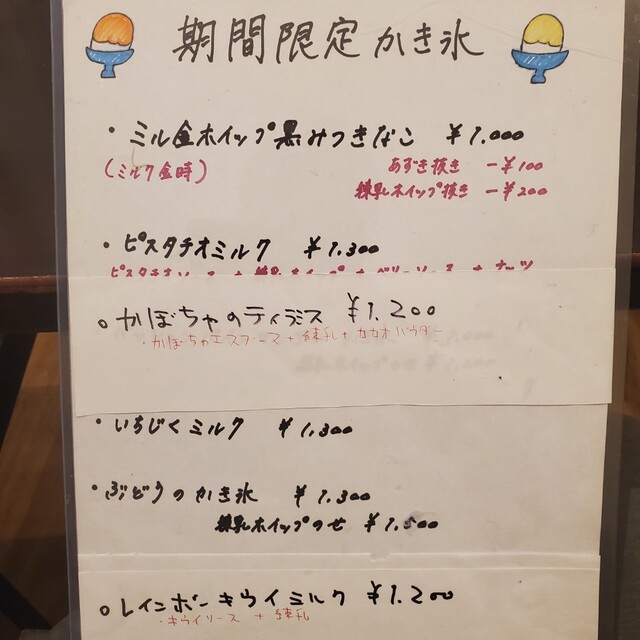 期間限定かき氷
・ミル金ホイップ黒みつきなこ ¥1.000
(ミルク金時) あずき抜き -¥100
練乳ホイップ抜き -¥200
・ピスタチオミルク ¥1.300
。かぼちゃのティラミス ¥1.200
・かぼちゃエスプーマソース+練乳+カカオパウダー
・いちじくミルク ¥1.300
・ぶどうのかき氷 ¥1.300
練乳ホイップのせ ¥1.500
。レインボーキウイミルク ¥1.200
・キウイソース + 練乳